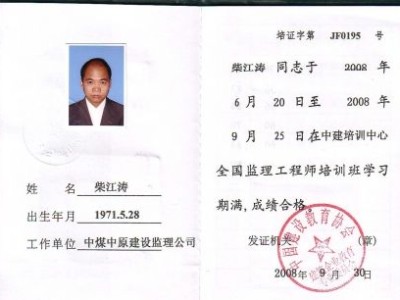 姓 名 柴江涛
出生年月 1971.5.28
工作单位 中煤中原建设监理公司
培证字第 JF0195 号
柴江涛 同志于 2008 年
6 月 20 日至 2008 年
9 月 25 日在中建培训中心
全国监理工程师培训班学习
期满,成绩合格。
发证机关 (章)
2008 年 9 月 30 日
中国建设教育协会